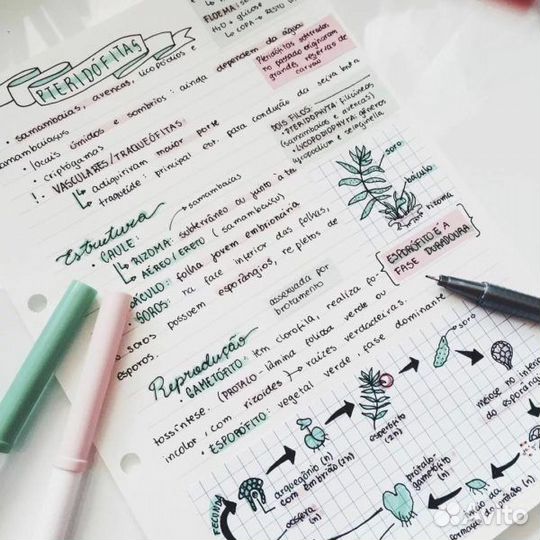 FLOEMA: sei
H2O + glicose
↳ COPA → RESTO (
PTERIDÓFITAS
• samambaias, avencas, licopódios e
samambaiaçus
• locais úmidos e sombrios: ainda dependem da água
• criptógamas
!. VASCULARES/TRAQUEÓFITAS:
↳ adquiriram maior porte
↳ traqueíde: principal est. para condução da seiva bruta
Pteridófitas soterradas
no passado originaram
grandes reservas de
carvão
DOIS FILOS:
• PTERIDOPHYTA: filicíneas
(samambaias e avencas)
• LYCOPODIOPHYTA: gêneros
lycopodium e selaginella
Estrutura
• CAULE: → samambaias
↳ RIZOMA: subterrâneo ou junto à ter
↳ AÉREO/ERETO (samambaiaçu)
BÁCULO: folha jovem embrionária
• SOROS: na face inferior das folhas,
os soros possuem esporângios, repletos de
esporos.
soro
báculo
rizoma
ESPORÓFITO É A
FASE DURADOURA
assexuada por
brotamento
Reprodução
• GAMETÓFITO: tem clorofila, realiza fo-
tossíntese. (PROTALO - lâmina fouza verde ou
incolor, com rizoides) → raízes verdadeiras.
• ESPORÓFITO: vegetal verde, fase dominante
soro
meiose no interior
do esporângio
esporófito
(2n)
arquegônio (n)
com embrião (2n)
FECUNDA
oosfera
(n)
prótalo-
gametófito
(n)
ação da
formação do prótalo (n)
Avito